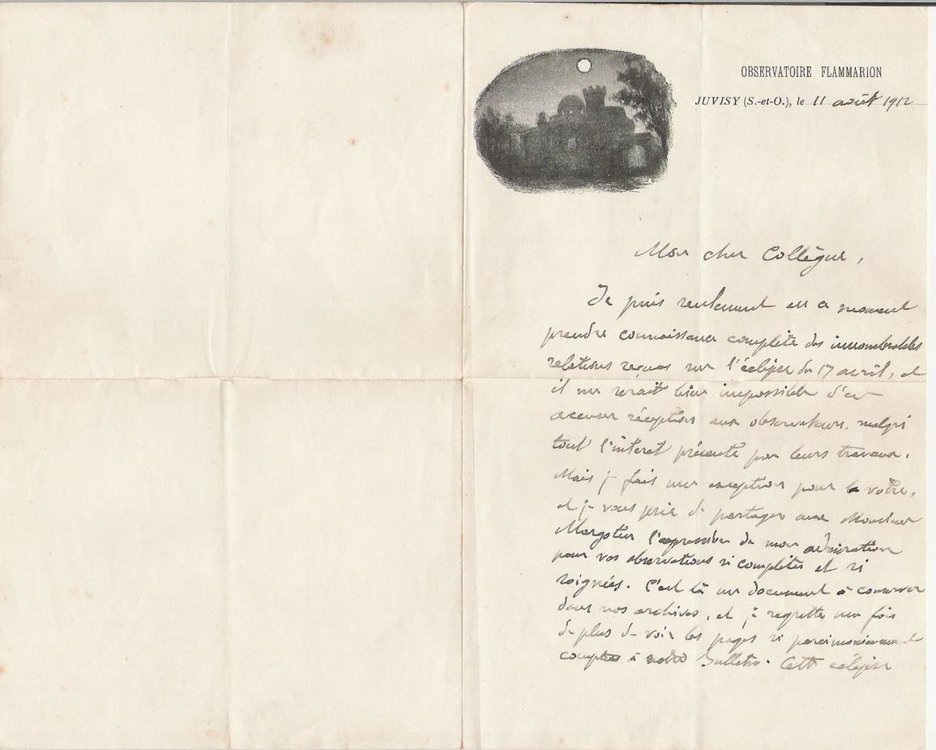 OBSERVATOIRE FLAMMARION
JUVISY (S.-et-O.), le 11 août 1912
Mon cher Collègue,
Je puis seulement en ce moment
prendre connaissance complète des innombrables
relations reçues sur l'éclipse du 17 avril, et
il me serait bien impossible d'en
accuser réception aux observateurs, malgré
tout l'intérêt présenté par leurs travaux.
Mais je fais une exception pour la vôtre,
et je vous prie de partager avec Monsieur
l'expression de mon admiration
pour vos observations si complètes et si
soignées. C'est là un document à conserver
dans nos archives, et je regrette une fois
de plus de voir les pages si parcimonieusement
comptées à notre Bulletin. Cette éclipse